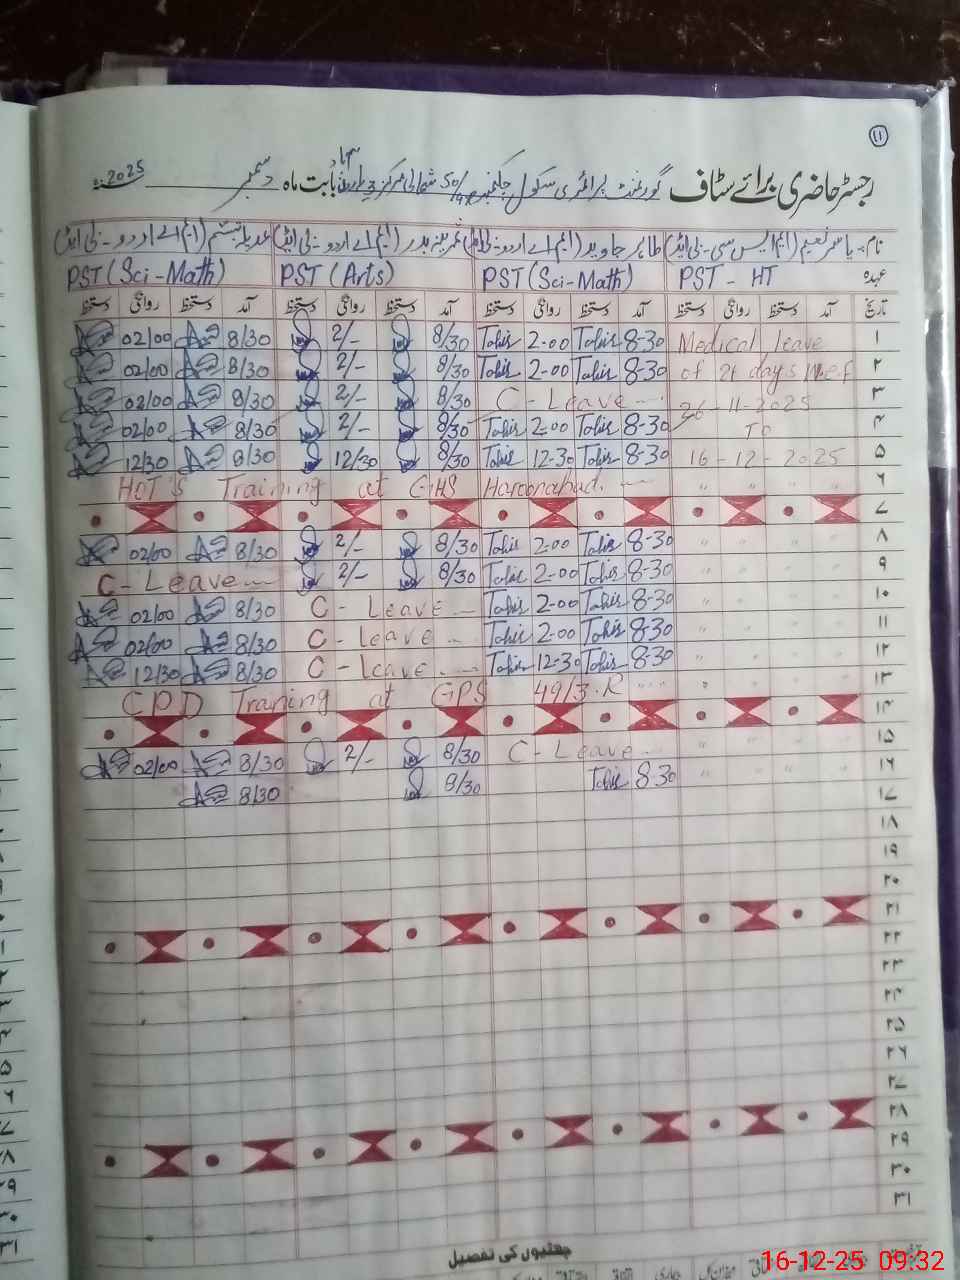 ۱۱
رجسٹر حاضری برائے سٹاف گورنمنٹ پرائمری سکول چکنمبر 50/ شمالی مرکز بابت ماہ دسمبر 2025
نام: یاسر نعیم (ایم ایس سی - بی ایڈ) طاہر جاوید (ایم اے اردو - بی ایڈ) بدر (ایم اے اردو - بی ایڈ) عدیلہ تبسم (ایم اے اردو - بی ایڈ)
عہدہ PST - HT PST (Sci-Math) PST (Arts) PST (Sci-Math)
تاریخ آمد دستخط روانگی دستخط آمد دستخط روانگی دستخط آمد دستخط روانگی دستخط آمد دستخط روانگی دستخط
02/00 8/30 2/- 8/30 Tahir 2-00 Tahir 8-30 Medical leave ۱
02/00 8/30 2/- 8/30 Tahir 2-00 Tahir 8-30 of 21 days w.e.f ۲
02/00 8/30 2/- 8/30 C - Leave 26-11-2025 ۳
02/00 8/30 2/- 8/30 Tahir 2-00 Tahir 8-30 To ۴
12/30 8/30 12/30 8/30 Tahir 12-30 Tahir 8-30 16-12-2025 ۵
HoT's Training at GHS Haroonabad. " " " " ۶
۷
02/00 8/30 2/- 8/30 Tahir 2-00 Tahir 8-30 " " " " ۸
C - Leave 2/- 8/30 Tahir 2-00 Tahir 8-30 " " " " ۹
02/00 8/30 C - Leave Tahir 2-00 Tahir 8-30 " " " " ۱۰
02/00 8/30 C - Leave Tahir 2-00 Tahir 8-30 " " " " ۱۱
12/30 8/30 C - Leave Tahir 12-30 Tahir 8-30 " " " " ۱۲
CPD Training at GPS 49/3.R " " " " ۱۳
۱۴
02/00 8/30 2/- 8/30 C - Leave " " " " ۱۵
8/30 8/30 Tahir 8-30 " " " " ۱۶
۱۷
۱۸
۱۹
۲۰
۲۱
۲۲
۲۳
۲۴
۲۵
۲۶
۲۷
۲۸
۲۹
۳۰
۳۱
چھٹیوں کی تفصیل
16-12-25 09:32